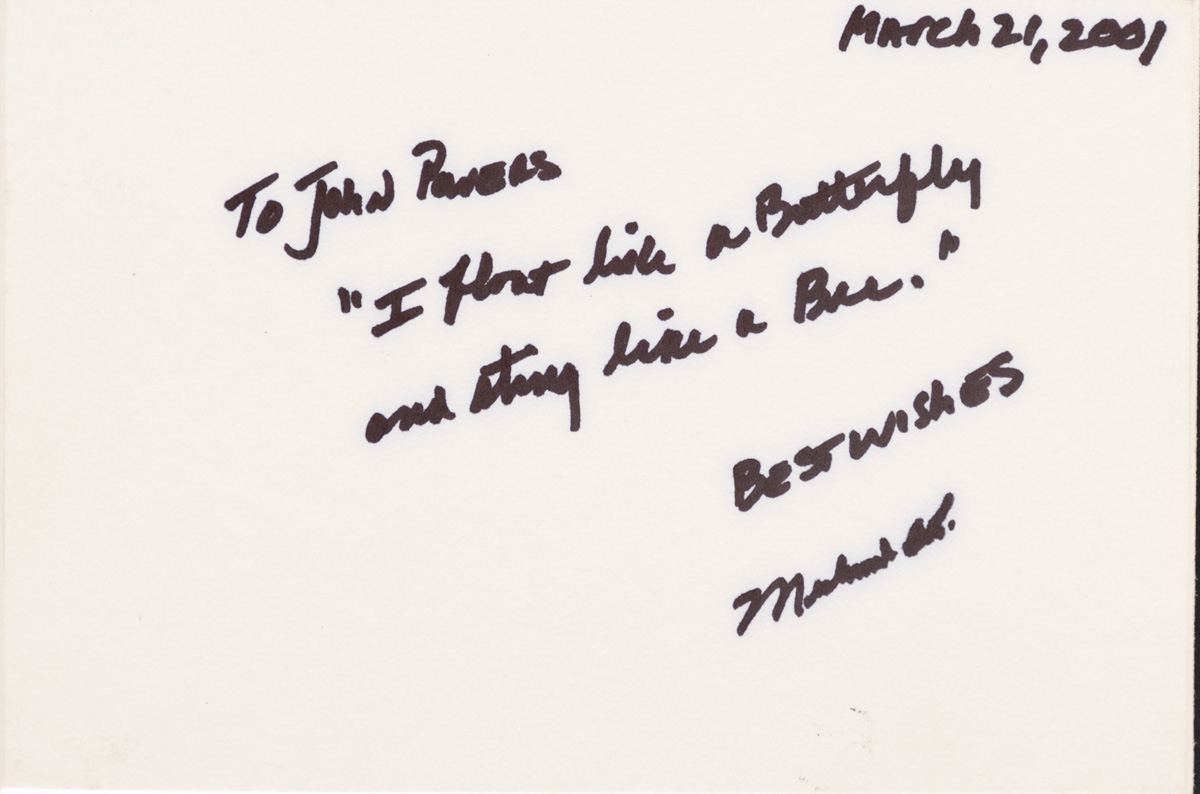 March 21, 2001
To John Powers
"I float like a Butterfly
and sting like a Bee."
Best wishes
Muhammad Ali